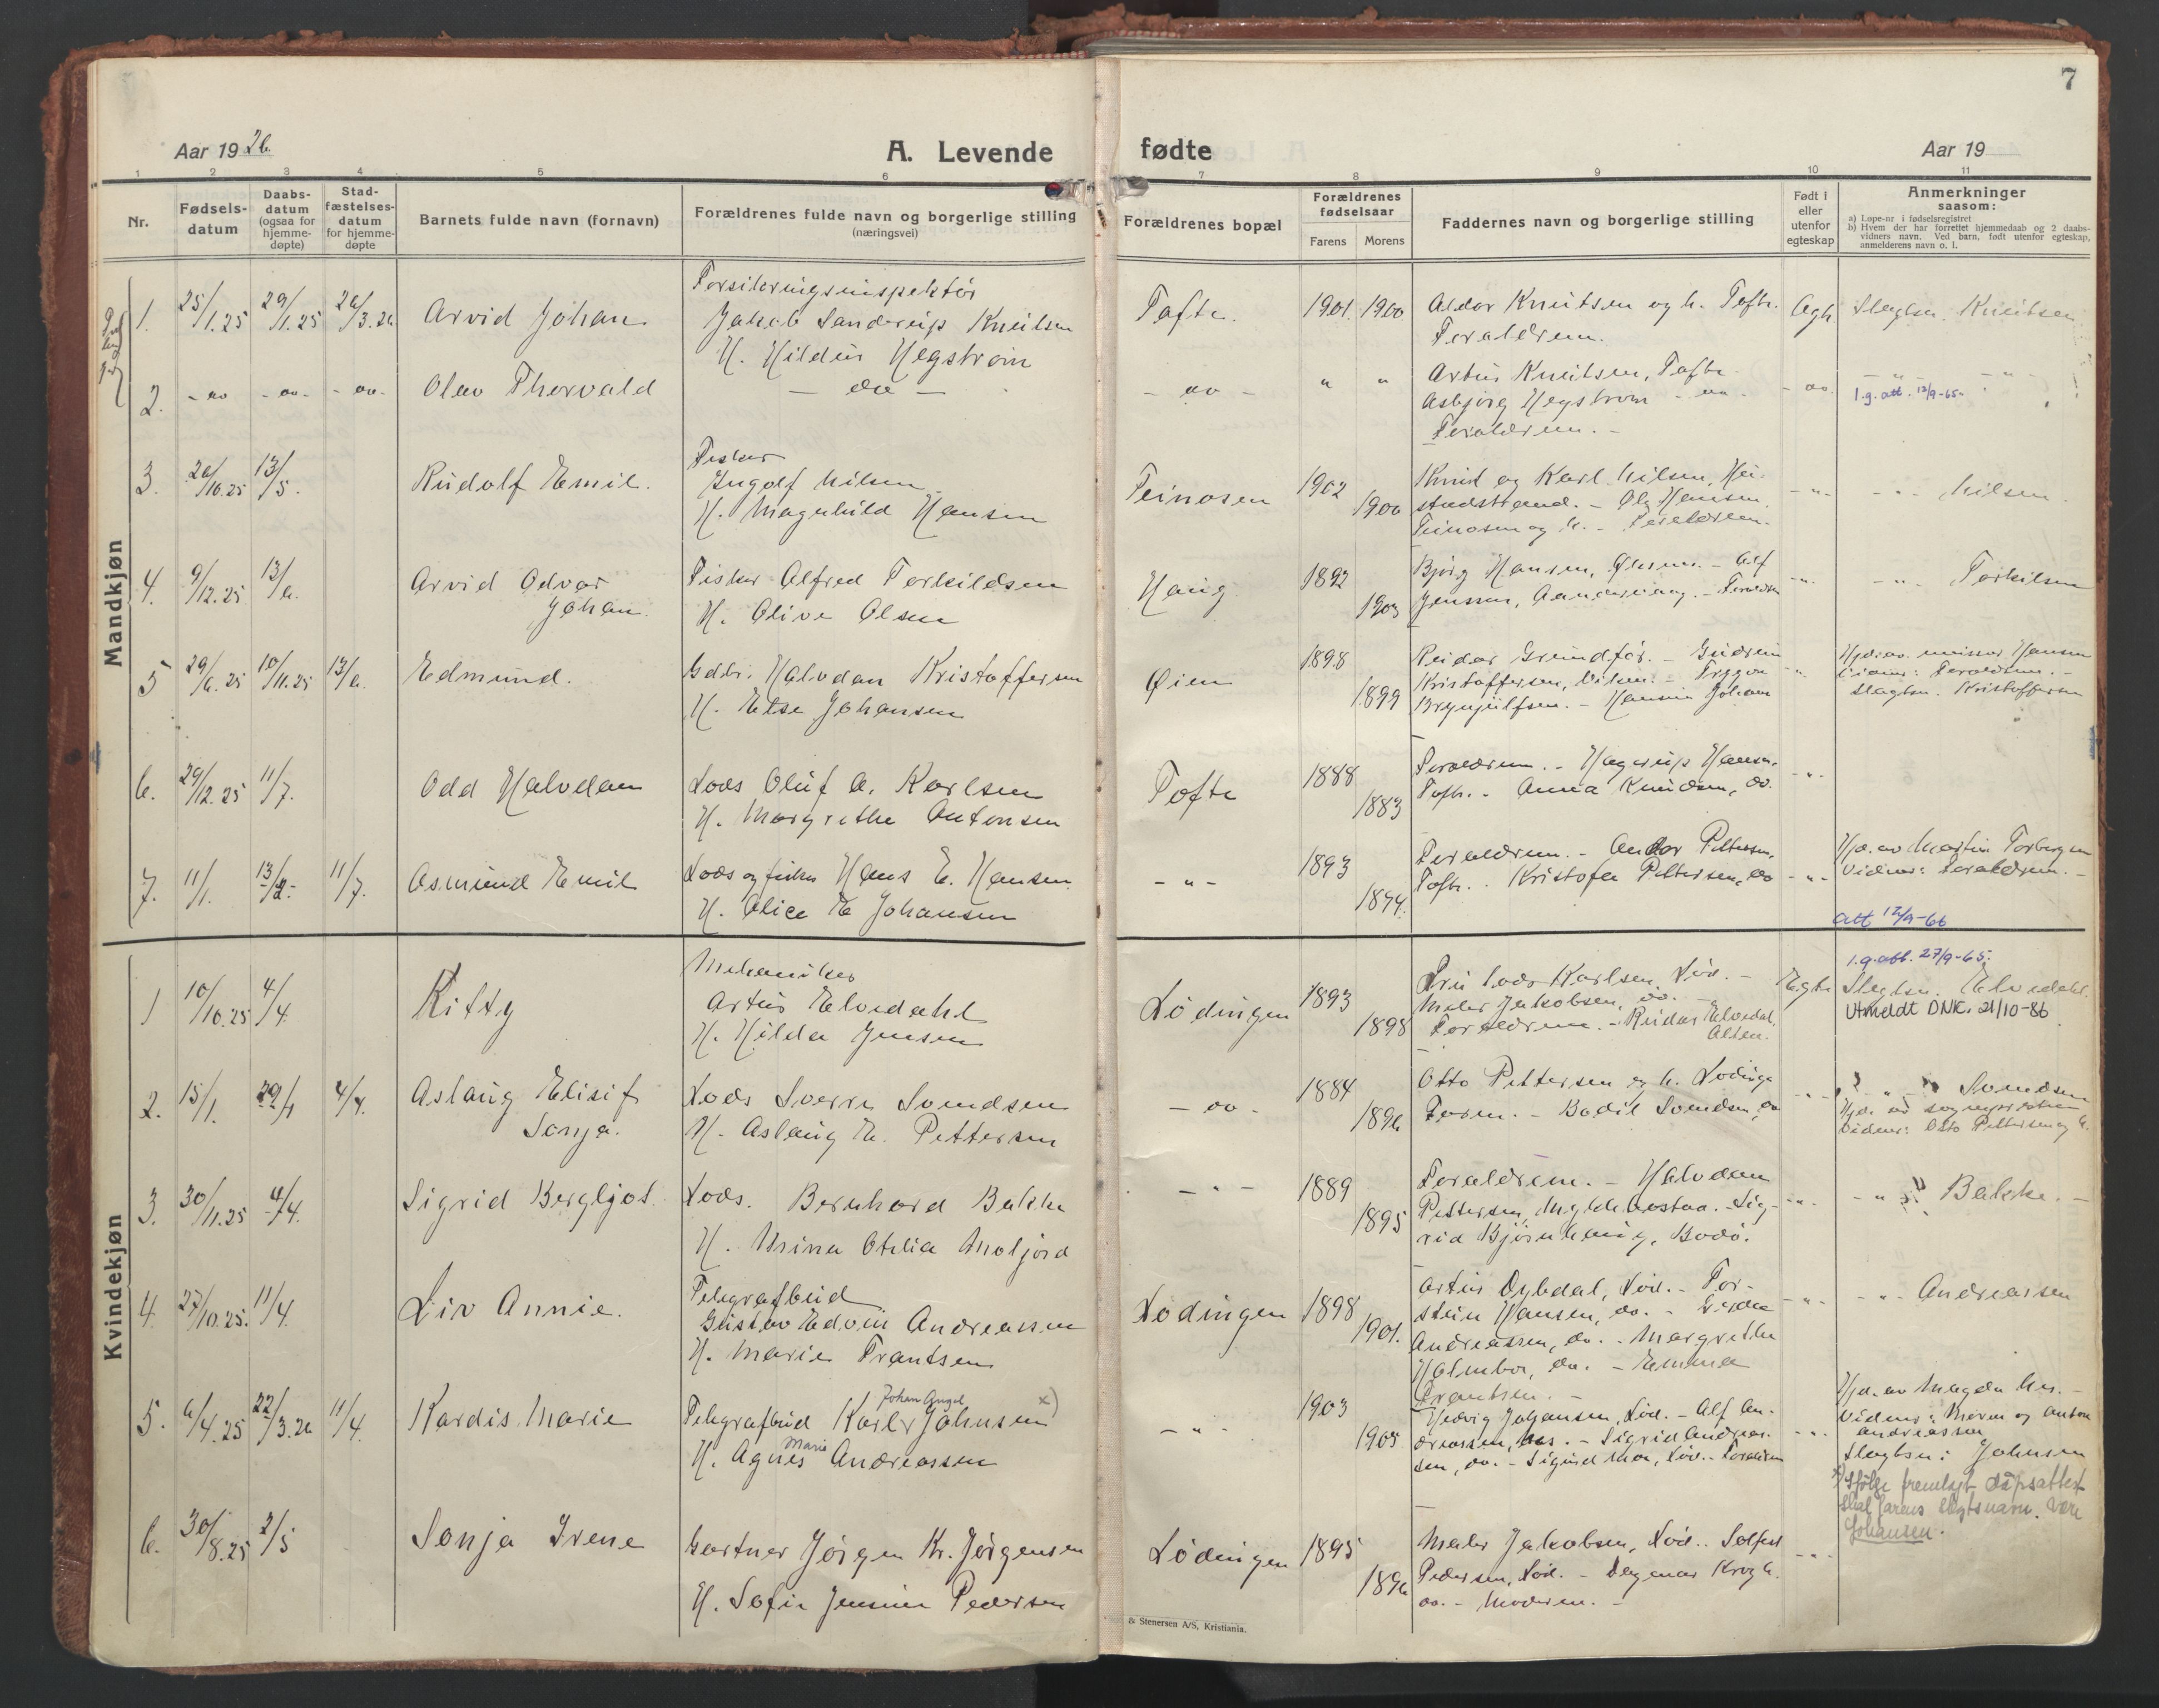 7
Aar 1926.
A. Levende fødte
Aar 19
1 2 3 4 5 6 7 8 9 10 11
Nr.
Fødsels-
datum
Daabs-
datum
(ogsaa for
hjemme-
døpte)
Stad-
fæstelses-
datum
for hjemme-
døpte
Barnets fulde navn (fornavn)
Forældrenes fulde navn og borgerlige stilling
(næringsvei)
Forældrenes bopæl
Forældrenes
fødselsaar
Farens Morens
Faddernes navn og borgerlige stilling
Født i
eller
utenfor
egteskap
Anmerkninger
saasom:
a) Løpe-nr i fødselsregistret
b) Hvem der har forrettet hjemmedaab og 2 daabs-
vidners navn. Ved barn, født utenfor egteskap,
anmelderens navn o. l.
Mandkjøn
1. 25/1.25 29/1.25 26/3.26 Arvid Johan
Jakob Sanderup Knutsen
H. Hildur Hegstrøm
Tofte. 1901. 1900
Aldor Knutsen og h. Tofte.
Foraldrene.
Egte. Slegtsn. Knutsen
2. - do - do - - do - Olav Thorvald - do -
- do - " "
Artur Knutsen, Tofte
Asbjørg Hegstrøm - do -
Foraldrene. -
- do. - " - - " -
1.g. att. 13/9-65-
3. 26/10.25 13/5. Rudolf Emil.
Fisker
Ingolf Nilsen
H. Magnhild Hansen
Teinosen 1902 1900
Knut og Karl Nilsen,
Teinosen og h. - Foraldrene.
- " - - " - Nilsen
4. 9/12.25 13/6. Arvid Odvar
Johan.
Fisker Alfred Torkildsen
H. Olive Olsen
Haug 1892 1903
Bjørg Hansen, - Alf
Jenssen, - Foraldrene
- " - - " - Torkilsen
5 29/6.25 10/11.25 13/6. Edmund.
Gdbr. Halvdan Kristoffersen
H. Else Johansen
Øien 1898 1899
Reidar Grundfør. - Gudrun
Kristoffersen, - Trygve
Brynjulfsen. - Johan
Hjd. av Hansen
Foraldrene. -
Slegtsn. Kristoffersen
6. 29/12.25 11/7. Odd Halvdan
Lods Oluf A. Karlsen
H. Margrethe Antonsen
Tofte 1888 1883
Foraldrene. - Hagerup Hansen,
Tofte. - Anna Knudsen, do.
- " -
7. 11/1. 13/2- 11/7. Asmund Emil
Lods og fisker Hans E. Hansen
H. Alice E Johansen
- " - 1893 1894.
Foraldrene. - Andor Pettersen,
Tofte. Kristofa Pettersen, do
- " -
Hjd. av Martin Torbergsen
Vidner: Foraldrene. -
att 12/9-66
Kvindekjøn
1 10/10.25 4/4. Kitty
Mekaniker
Artur Elvedahl
H. Hilda Jensen
Lødingen 1893 1898
Fru Lods Karlsen, Lød. -
Maler Jakobsen, do. -
Foraldrene. - Reidar Elvedal,
Alten.
Egte
1.g. att. 27/9-65.
Slegtsn. Elvedahl.
Utmeldt DNK. 21/10-86
2. 15/1. 29/1 4/4. Aslaug Elisif
Sonja.
Lods Sverre Svendsen
H. Aslaug E. Pettersen
- do - 1884 1896
Otto Pettersen og h. Lødingen
Forn. - Bodil Svendsen, do
- " - Svendsen
Hjd. av sogneprest
Vidner: Otto Pettersen og h.
3. 30/11.25 4/4. Sigrid Bergljot.
Lods. Bernhard Bakke
H. Mina Otelia Moljord
- " - 1889 1895
Foraldrene. - Halvdan
Pettersen, - Sig-
rid Bjørnhaug, Bodø.
- " - - " - Bakke. -
4. 27/10.25. 11/4. Liv Annie.
Telegrafbud
Gustav Edvin Andreassen
H. Marie Frantsen
Lødingen 1898 1901.
Artur Dybdal, Lød. - Tor-
stein Hansen, do. -
Andreassen, do. - Margrethe
Holmbo, do. - Emma
Frantsen. -
- " - - " - Andreassen
5. 6/4.25 22/3.26 11/4. Kardis Marie
Johan Angel
Telegrafbud Karl Johnsen x)
Marie
H. Agnes Andreassen
- " - 1903 1905
Hedvig Johansen, Lød. - Alf An-
dreassen, do. - Sigrid Andreas-
sen, do. - Sigurd Moe, Lød. - Foraldrene
- " -
Hjd. av Magda
Vidner: Moren og Anton
Andreassen
Slegtsn: Johnsen
x) Ifølge fremlagt dåpsattest
skal farens slegtsnavn være
Johansen.
6. 30/8.25 2/5 Sonja Irene
Gartner Jørgen Kr. Jørgensen
H. Sofie Jensine Pedersen
Lødingen 1895 1896
Maler Jakobsen, Lød. - Solfest
Pedersen, Lød. - Dagmar Krogh,
do. - Moderen. -
- " -
& Stenersen A/S, Kristiania.